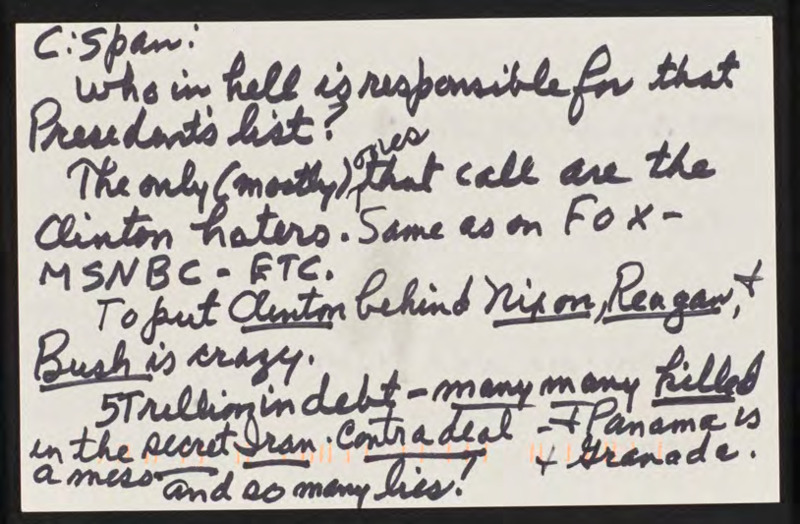 C:Span:
Who in hell is responsible for that
Presedents list?
The only (mostly) ones that call are the
Clinton haters. Same as on FOX-
MSNBC - ETC.
To put Clinton behind Nixon, Reagan, +
Bush is crazy.
5Trillion in debt - many many killed
in the secret Iran. Contra deal - + Panama is
a mess + Granada.
and so many lies!